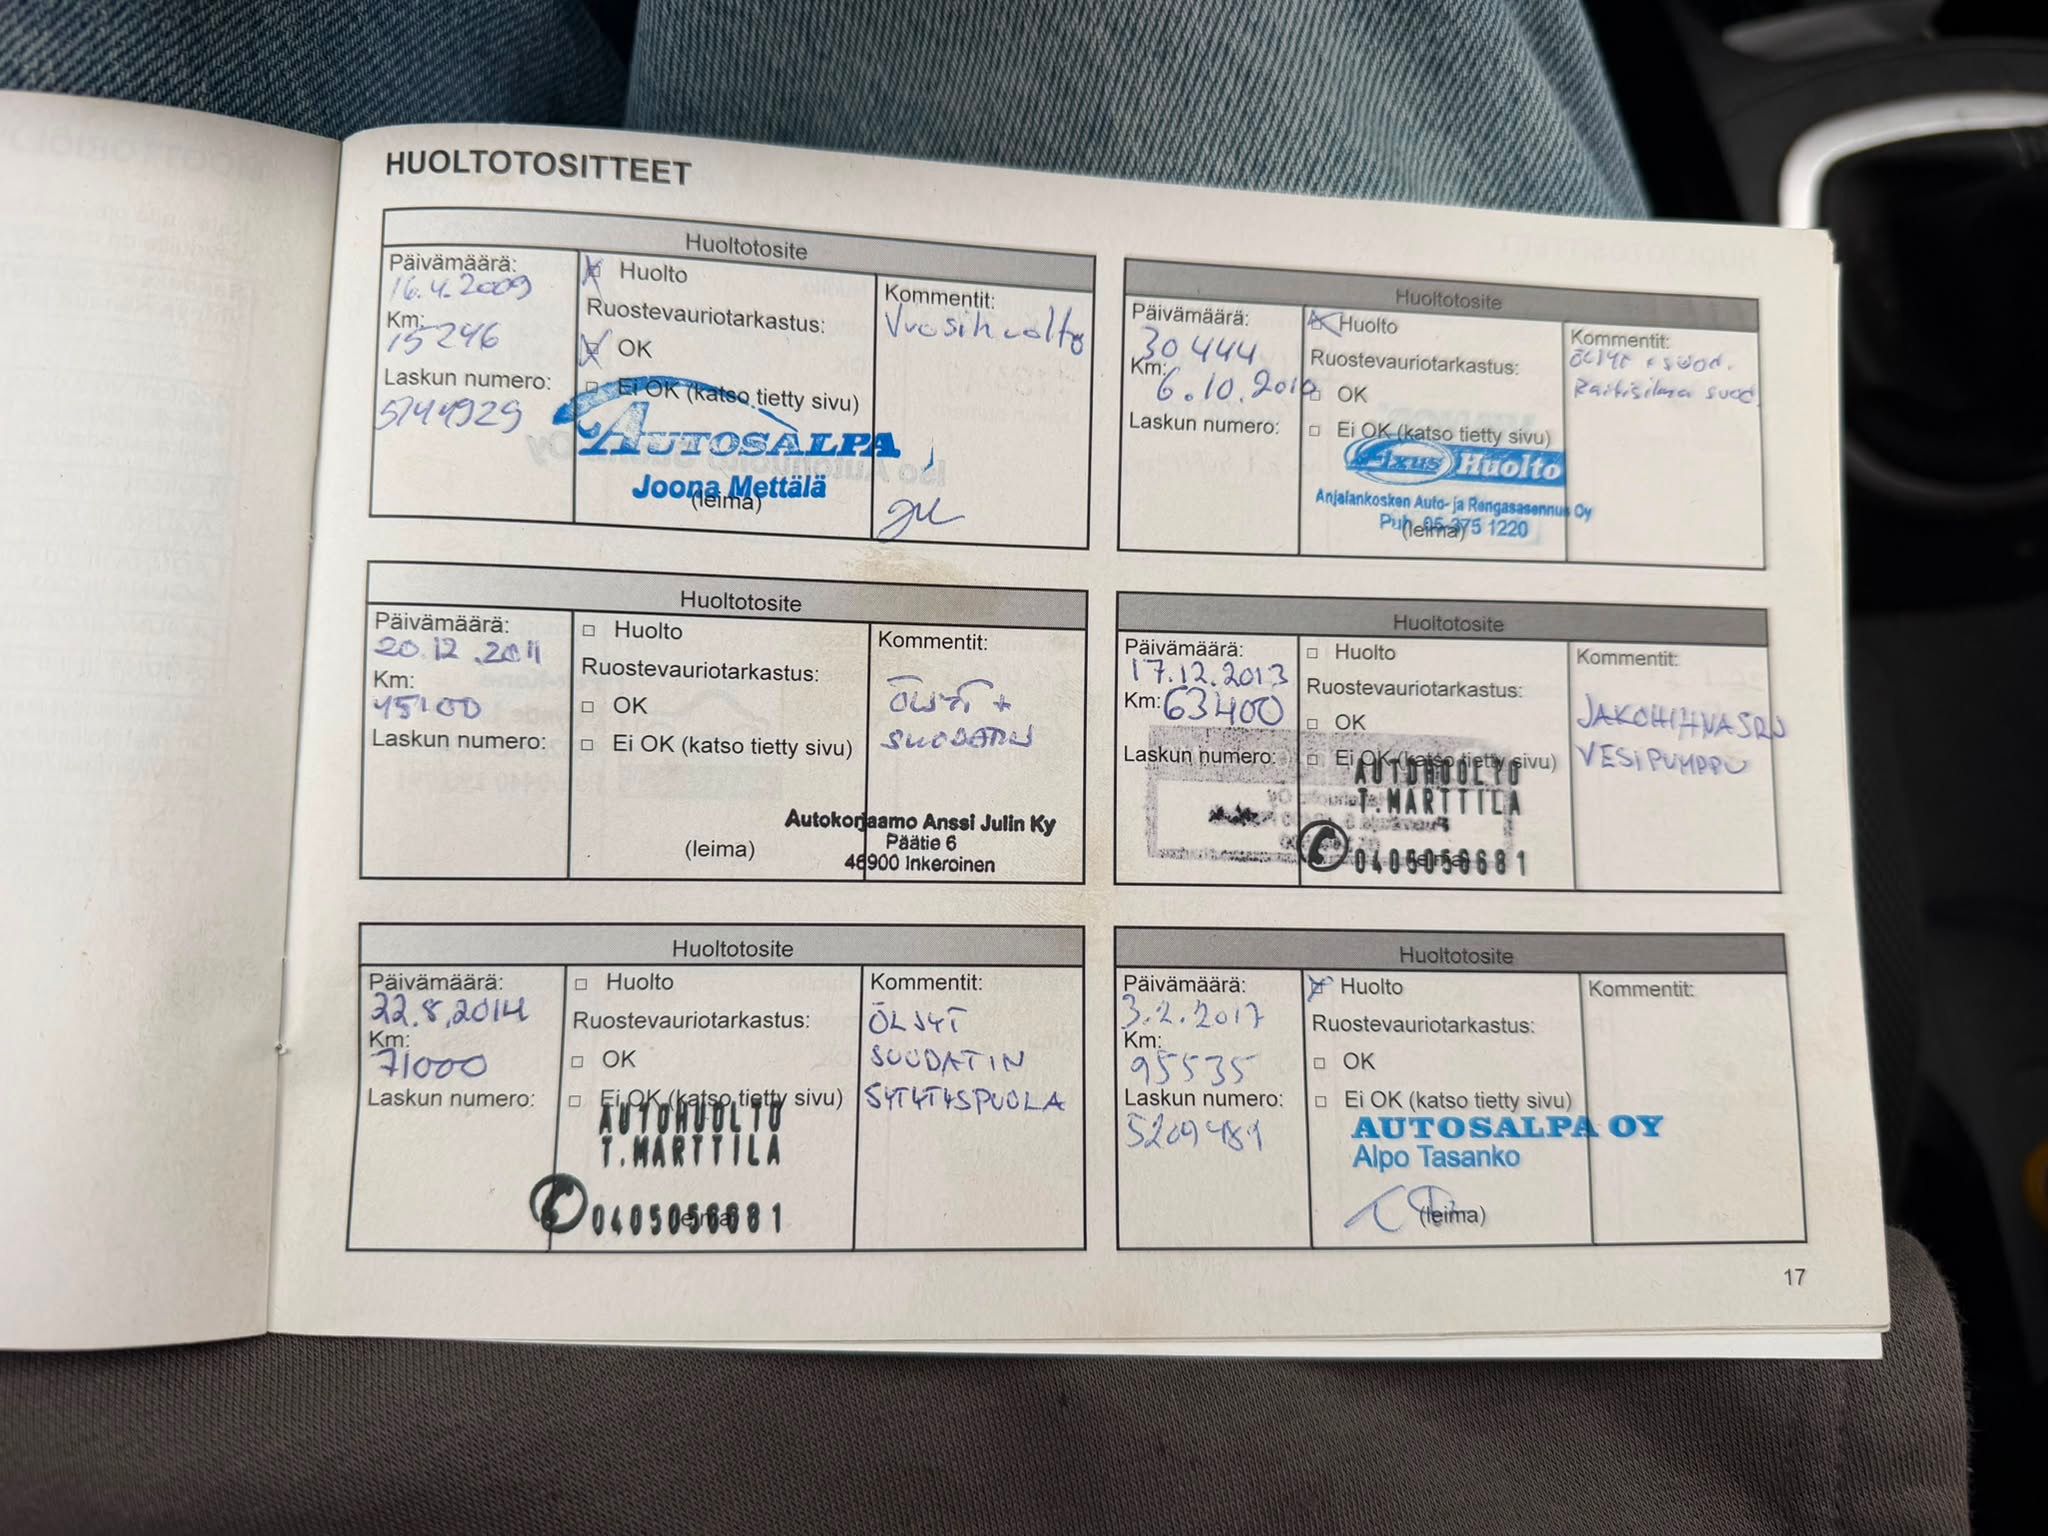 HUOLTOTOSITTEET
Huoltotosite
Päivämäärä:
16.4.2009
Km:
15246
Laskun numero:
5144929
Huolto
Ruostevauriotarkastus:
OK
Ei OK (katso tietty sivu)
AUTOSALPA
Joona Mettälä
(leima)
Kommentit:
Vuosihuolto
Huoltotosite
Päivämäärä:
30444
Km:
6.10.2010
Laskun numero:
Huolto
Ruostevauriotarkastus:
OK
Ei OK (katso tietty sivu)
Fixus Huolto
Anjalankosken Auto- ja Rengasasennus Oy
Puh. 05-375 1220
(leima)
Kommentit:
Öljyt + suod.
Raitisilma suod.
Huoltotosite
Päivämäärä:
20.12.2011
Km:
45100
Laskun numero:
Huolto
Ruostevauriotarkastus:
OK
Ei OK (katso tietty sivu)
(leima)
Kommentit:
ÖLJYT +
SUODATIN
Autokorjaamo Anssi Julin Ky
Päätie 6
46900 Inkeroinen
Huoltotosite
Päivämäärä:
17.12.2013
Km: 63400
Laskun numero:
Huolto
Ruostevauriotarkastus:
OK
Ei OK (katso tietty sivu)
AUTOHUOLTO
T.MARTTILA
0405056681
(leima)
Kommentit:
JAKOHIHNASRJ
VESIPUMPPU
Huoltotosite
Päivämäärä:
22.8.2014
Km:
71000
Laskun numero:
Huolto
Ruostevauriotarkastus:
OK
Ei OK (katso tietty sivu)
AUTOHUOLTO
T.MARTTILA
0405056681
(leima)
Kommentit:
ÖLJYT
SUODATIN
SYTYTYSPUOLA
Huoltotosite
Päivämäärä:
3.2.2017
Km:
95535
Laskun numero:
5209489
Huolto
Ruostevauriotarkastus:
OK
Ei OK (katso tietty sivu)
AUTOSALPA OY
Alpo Tasanko
(leima)
Kommentit:
17